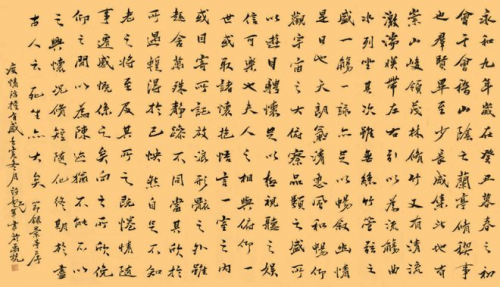 永和九年歲在癸丑暮春之初
會于會稽山陰之蘭亭脩稧事
也群賢畢至少長咸集此地有
崇山峻領茂林脩竹又有清流
激湍暎帶左右引以為流觴曲
水列坐其次雖無絲竹管弦之
盛一觴一詠亦足以暢叙幽情
是日也天朗氣清惠風和暢仰
觀宇宙之大俯察品類之盛所
以遊目騁懷足以極視聽之娛
信可樂也夫人之相與俯仰一
世或取諸懷抱悟言一室之內
或因寄所託放浪形骸之外雖
趣舍萬殊靜躁不同當其欣於
所遇暫得於己怏然自足不知
老之將至及其所之既惓情隨
事遷感慨係之矣向之所欣俛
仰之間以為陳迹猶不能不以
之興懷況脩短隨化終期於盡
古人云死生亦大矣 節錄蘭亭序